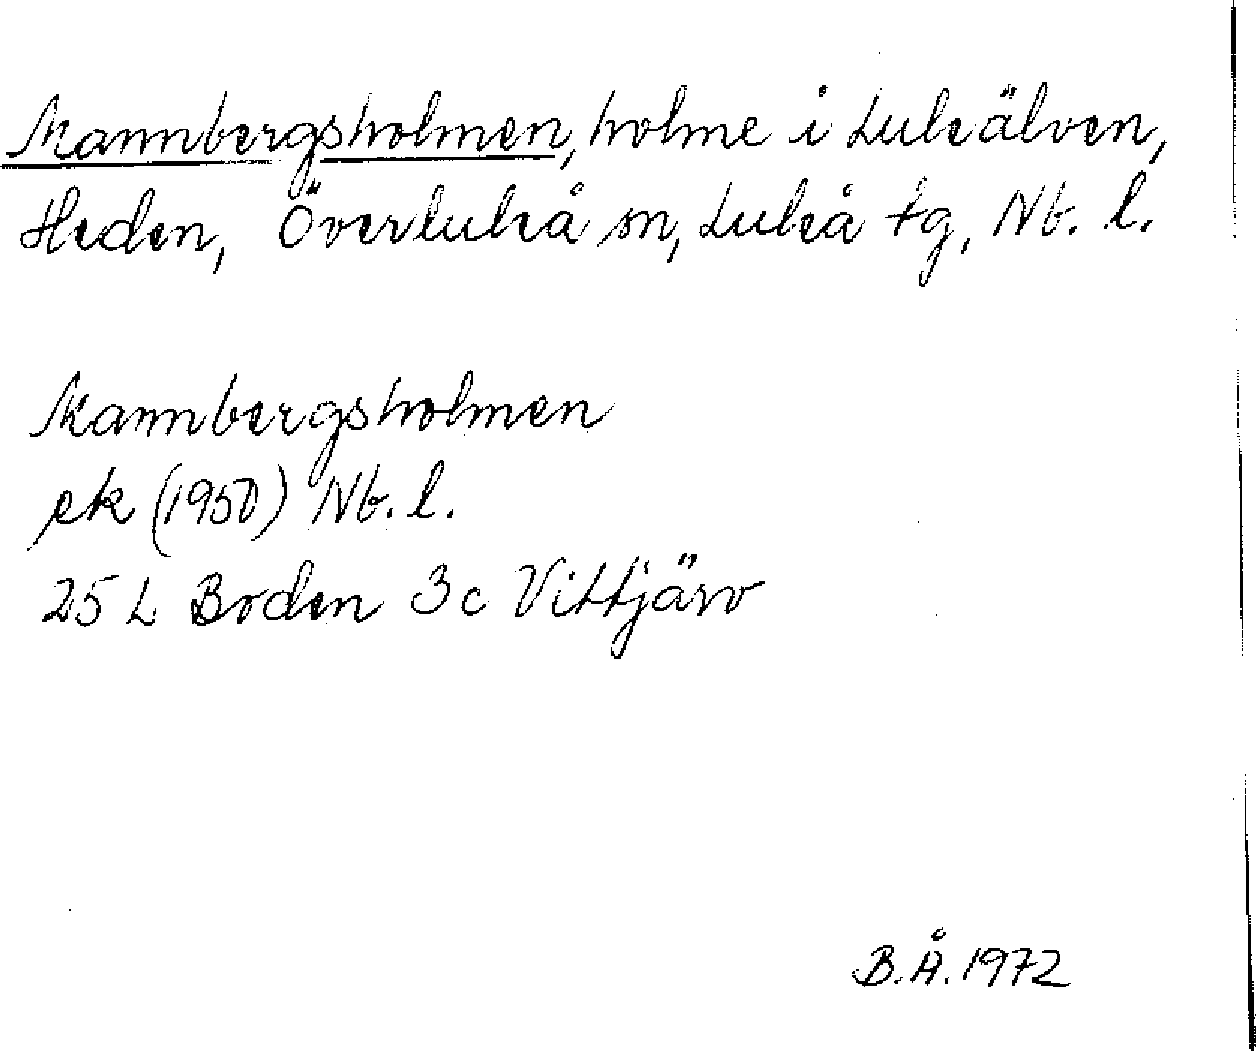 Mannbergsholmen, holme i Luleälven,
Heden, Överluleå sn, Luleå tg, Nb. l.
Mannbergsholmen
ek (1950) Nb. l.
25 L Boden 3c Vittjärv
B.Å. 1972